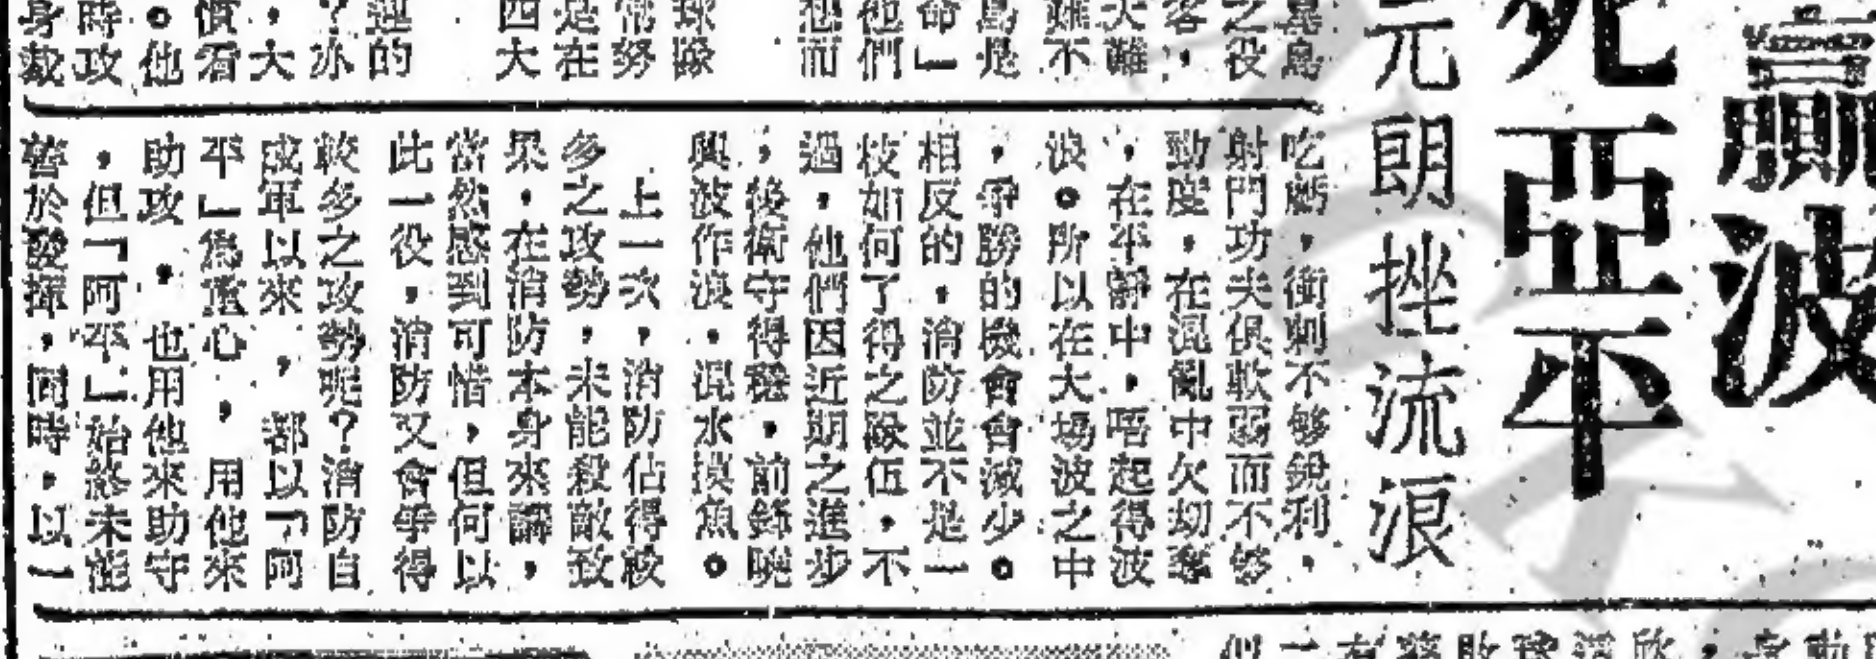 贏波
死亞平
元朗挫流浪
吃虧，衝刺不够銳利，
射門功夫俱軟弱而不够
勁度，在混亂中欠刼奪
，在平靜中，唔起得波
浪。所以在大場波之中
，爭勝的機會會減少。
相反的，消防並不是一
枝如何了得之隊伍，不
過，他們因近期之進步
，後衛守得穩，前鋒曉
興波作浪，混水摸魚。
上一次，消防佔得較
多之攻勢，未能殺敵致
果，在消防本身來講，
當然感到可惜，但何以
此一役，消防又會爭得
較多之攻勢呢？消防自
成軍以來，都以「阿
平」為重心，用他來
助攻，也用他來助守
，但「阿平」始終未能
善於發揮，同時，以一
島是
之役
客，
大難
雖不
島是
命」
他們
想而
球隊
常努
是在
四大
運的
？亦
，大
價看
。他
時攻
身裁